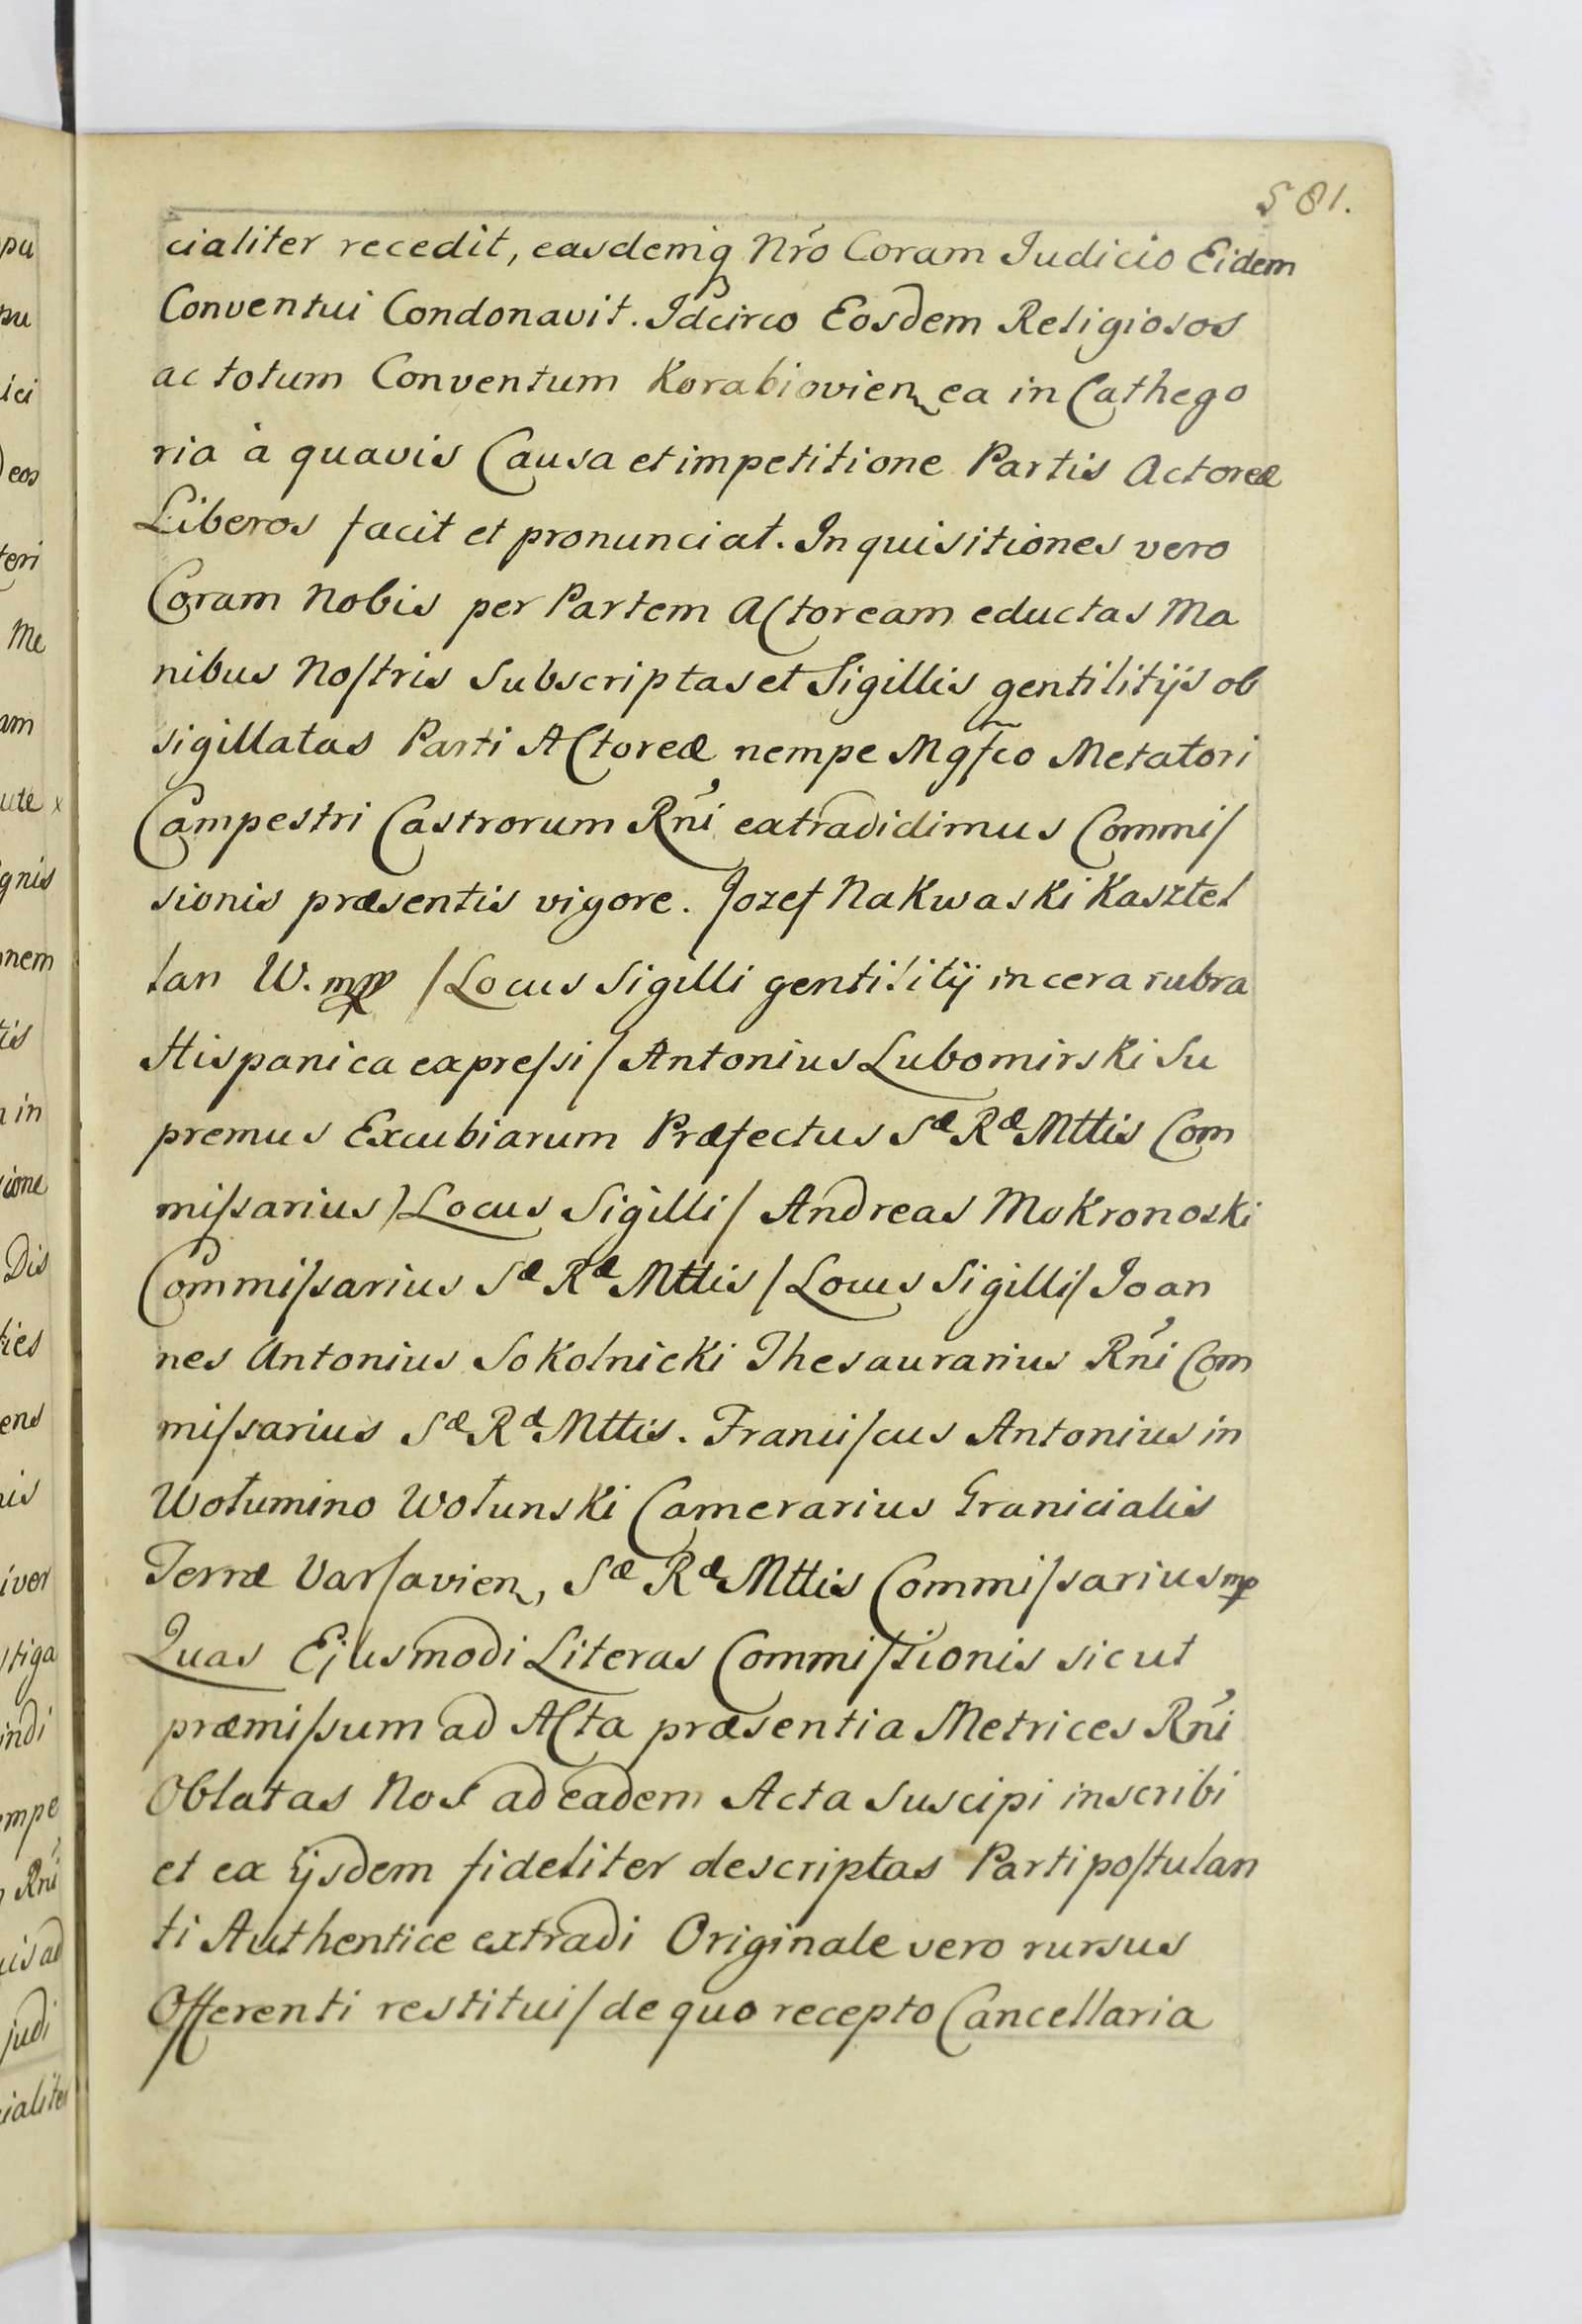 581.
cialiter recedit, easdemq Nro Coram Judicio Eidem
Conventui Condonavit. Idcirco Eosdem Religiosos
ac totum Conventum Korabiovien ea in Cathego
ria à quavis Causa et impetitione Partis Actoreæ
Liberos facit et pronunciat. Inquisitiones vero
Coram Nobis per Partem Actoream eductas Ma
nibus Nostris Subscriptas et Sigillis gentilitijs ob
sigillatas Parti Actoreæ nempe Mgfco Metatori
Campestri Castrorum Rni extradidimus Commis
sionis præsentis vigore. Jozef Nakwaski Kasztel
lan W. mpp /Locus Sigilli gentilitij in cera rubra
Hispanica expressi/ Antonius Lubomirski Su
premus Excubiarum Præfectus Sæ Ræ Mttis Com
missarius /Locus Sigilli/ Andreas Mokronoski
Commissarius Sæ Ræ Mttis /Locus Sigilli/ Joan
nes Antonius Sokolnicki Thesaurarius Rni Com
missarius Sæ Ræ Mttis. Franciscus Antonius in
Wołumino Wołunski Camerarius Granicialis
Terræ Varsavien, Sæ Ræ Mttis Commissarius mp
Quas Ejusmodi Literas Commissionis sicut
præmissum ad Acta præsentia Metrices Rni
Oblatas Nos ad eadem Acta Suscipi inscribi
et ex ijsdem fideliter descriptas Parti postulan
ti Authentice extradi Originale vero rursus
Offerenti restitui/ de quo recepto Cancellaria